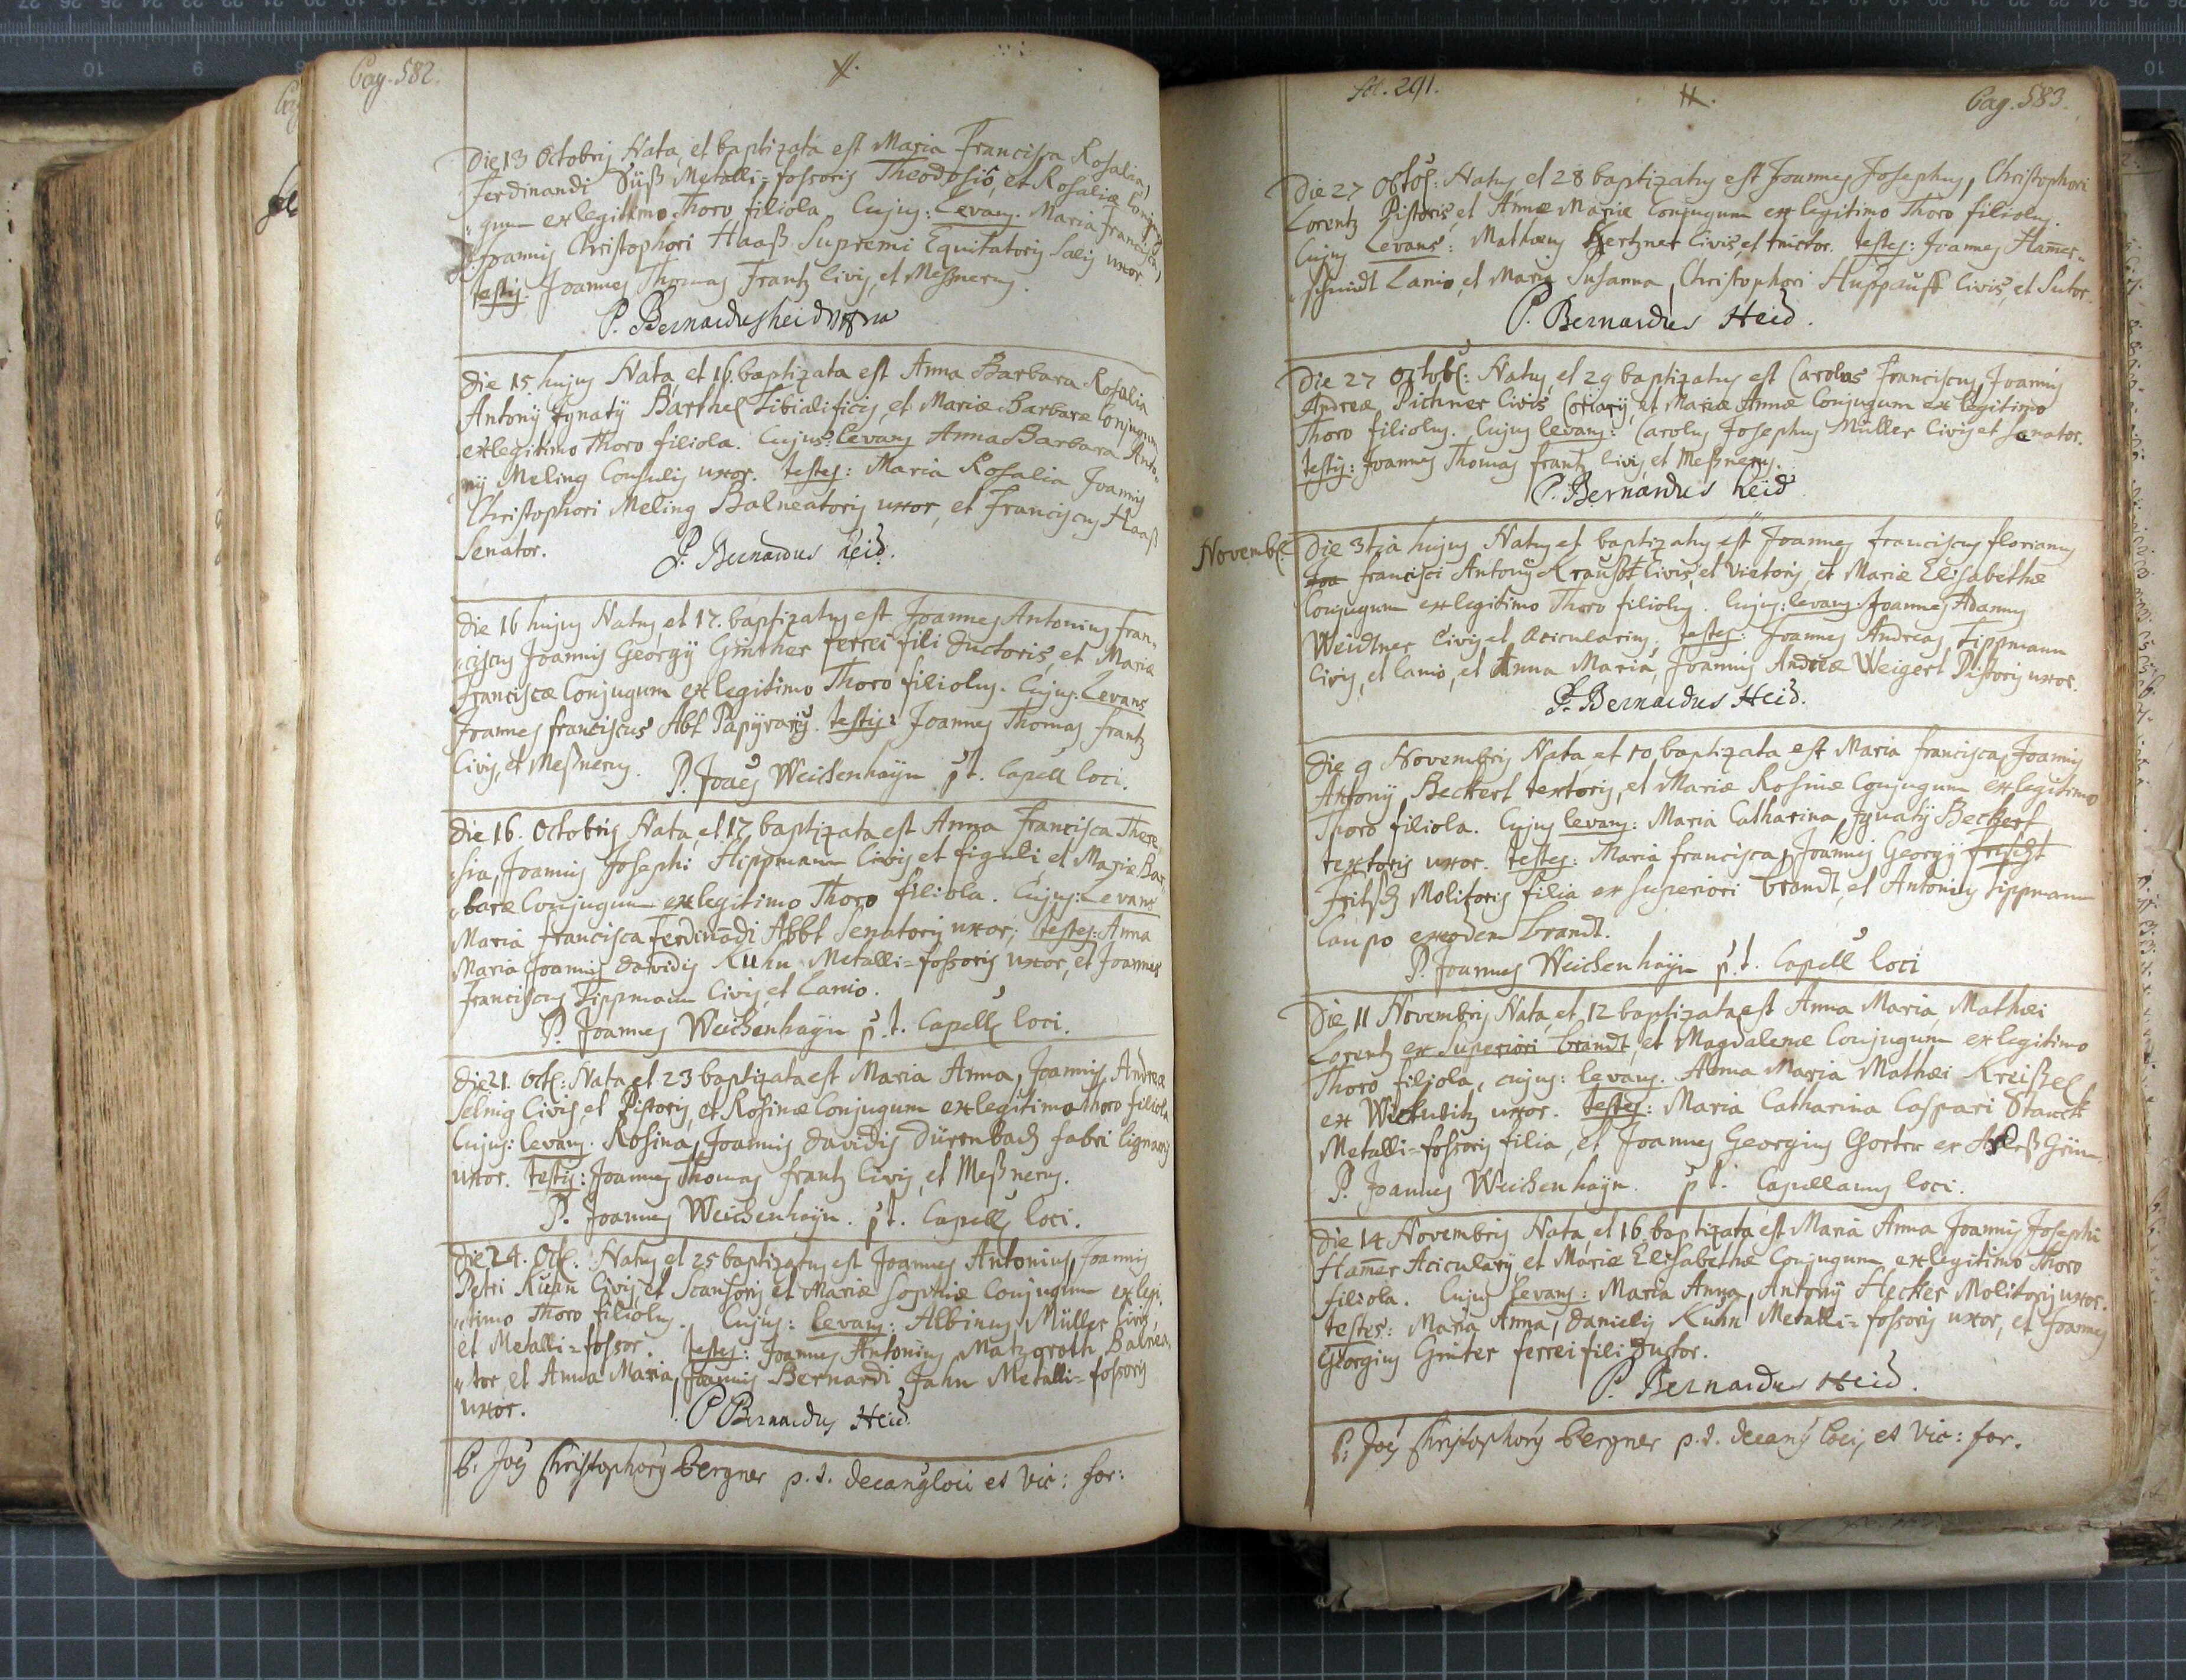 Pag. 582.
Die 13 Octobris Nata, et baptizata est Maria Francisca Rosalia,
Ferdinandi Süß Metalli=fossoris Theodosio, et Rosaliæ Conju„
„gum ex legitimo Thoro filiola. Cujus: Levans. Maria Francisca,
Joannis Christophori Haaß Supremi Equitatoris Salis uxor.
testis: Joannes Thomas Frantz Civis, et Meßnerus.
P. Bernardus Heid
Die 15 hujus Nata, et 16. baptizata est Anna Barbara Rosalia
Antonÿ Ignatÿ Barthel Tibialificis, et Mariæ Barbaræ Conjugum
ex legitimo Thoro filiola. Cujus: Levans Anna Barbara Anto„
„nÿ Meling Consulis uxor. testes: Maria Rosalia Joannis
Christophori Meling Balneatoris uxor, et Franciscus Haaß
Senator. P. Bernardus Heid.
Die 16 hujus Natus et 17. baptizatus est Joannes Antonius Fran„
„ciscus Joannis Georgÿ Günther ferrei fili Ductoris, et Mariæ
Franciscæ Conjugum ex legitimo Thoro filiolus. Cujus: Levans
Joannes Franciscus Abt Papÿrarÿ. testis: Joannes Thomas Frantz
Civis, et Meßnerus. P. Joães Weichenhaÿn p.t. Capell loci.
Die 16. Octobris Nata, et 17 baptizata est Anna Francisca There„
„sia, Joannis Josephi Hippmann Civis et figuli et Mariæ Bar„
„baræ Conjugum ex legitimo Thoro filiola. Cujus: Levans
Maria Francisca Ferdinãdi Abbt Senatoris uxor; testes: Anna
Maria Joannis Davidis Kuhn Metalli=fossoris uxor, et Joannes
Franciscus Tippmann Civis, et Lanio.
P. Joannes Weichenhaÿn p.t. Capell loci.
Die 21. Oct: Nata et 23 baptizata est Maria Anna, Joannis Andreæ
Selnig Civis, et Pistoris, et Rosinæ Conjugum ex legitimo thoro filiola
Cujus: levans. Rosina, Joannis Davidis Dürrnbach fabri lignarÿ
uxor. testis: Joannes Thomas Frantz Civis, et Meßnerus.
P. Joannes Weichenhaÿn. p.t. Capell loci.
Die 24. Oct: Natus et 25 baptizatus est Joannes Antonius, Joannis
Petri Kuhn Civis, et Scansoris et Mariæ Sophiæ Conjugum ex legi„
„timo Thoro filiolus. Cujus: levans: Albinus Müller Civis,
et Metalli=fossor. testes: Joannes Antonius Matzgroth Balnea„
„tor et Anna Maria, Joannis Bernardi Jahn Metalli=fossoris
uxor. P Bernardus Heid.
P: Joës Christophorus Bergner p.t. Decanus loci et Vic: for:
fol. 291.
Pag. 583.
Die 27 Octob: Natus, et 28 baptizatus est Joannes Josephus, Christophori
Lorentz Pistoris, et Annæ Mariæ Conjugum ex legitimo Thoro filiolus.
Cujus Levans: Mathæus Hertzner Civis, et tinctor. testes: Joannes Ham̃er„
„schmidt Lanio, et Maria Susanna, Christophori Huppauff Civis, et Sutor.
P. Bernardus Heid.
Die 27 Octob: Natus, et 29 baptizatus est Carolus Franciscus, Joannis
Andreæ Pichner Civis Coriarÿ, et Mariæ Annæ Conjugum ex legitimo
Thoro filiolus. Cujus levans: Carolus Josephus Müller Civis et Senator.
testis: Joannes Thomas Frantz Civis, et Meßnerus.
P. Bernardus Heid
Novemb:
Die 3tia hujus Natus et baptizatus est Joannes Franciscus Florianus
Joa Francisci Antonÿ Krauß Civis, et Vietoris, et Mariæ Elisabethæ
Conjugum ex legitimo Thoro filiolus. Cujus: levans: Joannes Adamus
Weidtner Civis et Acicularius, testes: Joannes Andreas Tippmann
Civis, et Lanio, et Anna Maria, Joannis Andreæ Weigert Pistoris uxor.
P. Bernardus Heid.
Die 9 Novembris Nata, et 10 baptizata est Maria Francisca, Joannis
Antonÿ Beckert textoris, et Mariæ Rosinæ Conjugum ex legitimo
Thoro filiola. Cujus levans: Maria Catharina, Ignatÿ Beckert
textoris uxor. testes: Maria Francisca, Joannis Georgÿ Frischt
Fritsch Molitoris filia ex Superiori Brandt, et Antonius Tippmann
Caupo ex eodem Brandt.
P. Joannes Weichenhaÿn p.t. Capell loci
Die 11 Novembris Nata, et 12 baptizata est Anna Maria, Mathæi
Lorentz ex Superiori Brandt, et Magdalenæ Conjugum ex legitimo
Thoro filiola, cujus: levans. Anna Maria Mathæi Kreißel
ex Wickwitz uxor. testes: Maria Catharina Caspari Starck
Metalli=fossoris filia, et Joannes Georgius
P. Joannes Weichenhaÿn. p t. Capellanus loci.
Die 14 Novembris Nata, et 16 baptizata est Maria Anna Joannis Josephi
Ham̃er Acicularÿ et Mariæ Elisabethæ Conjugum ex legitimo Thoro
filiola. Cujus Levans: Maria Anna, Antonÿ Hecker Molitoris uxor.
testes: Maria Anna, Danielis Kuhn Metalli=fossoris uxor, et Joannes
Georgius Ginter ferrei fili Ductor.
P. Bernardus Heid.
P: Joës Christophorus Bergner p.t. Decanus loci, et Vic: for.